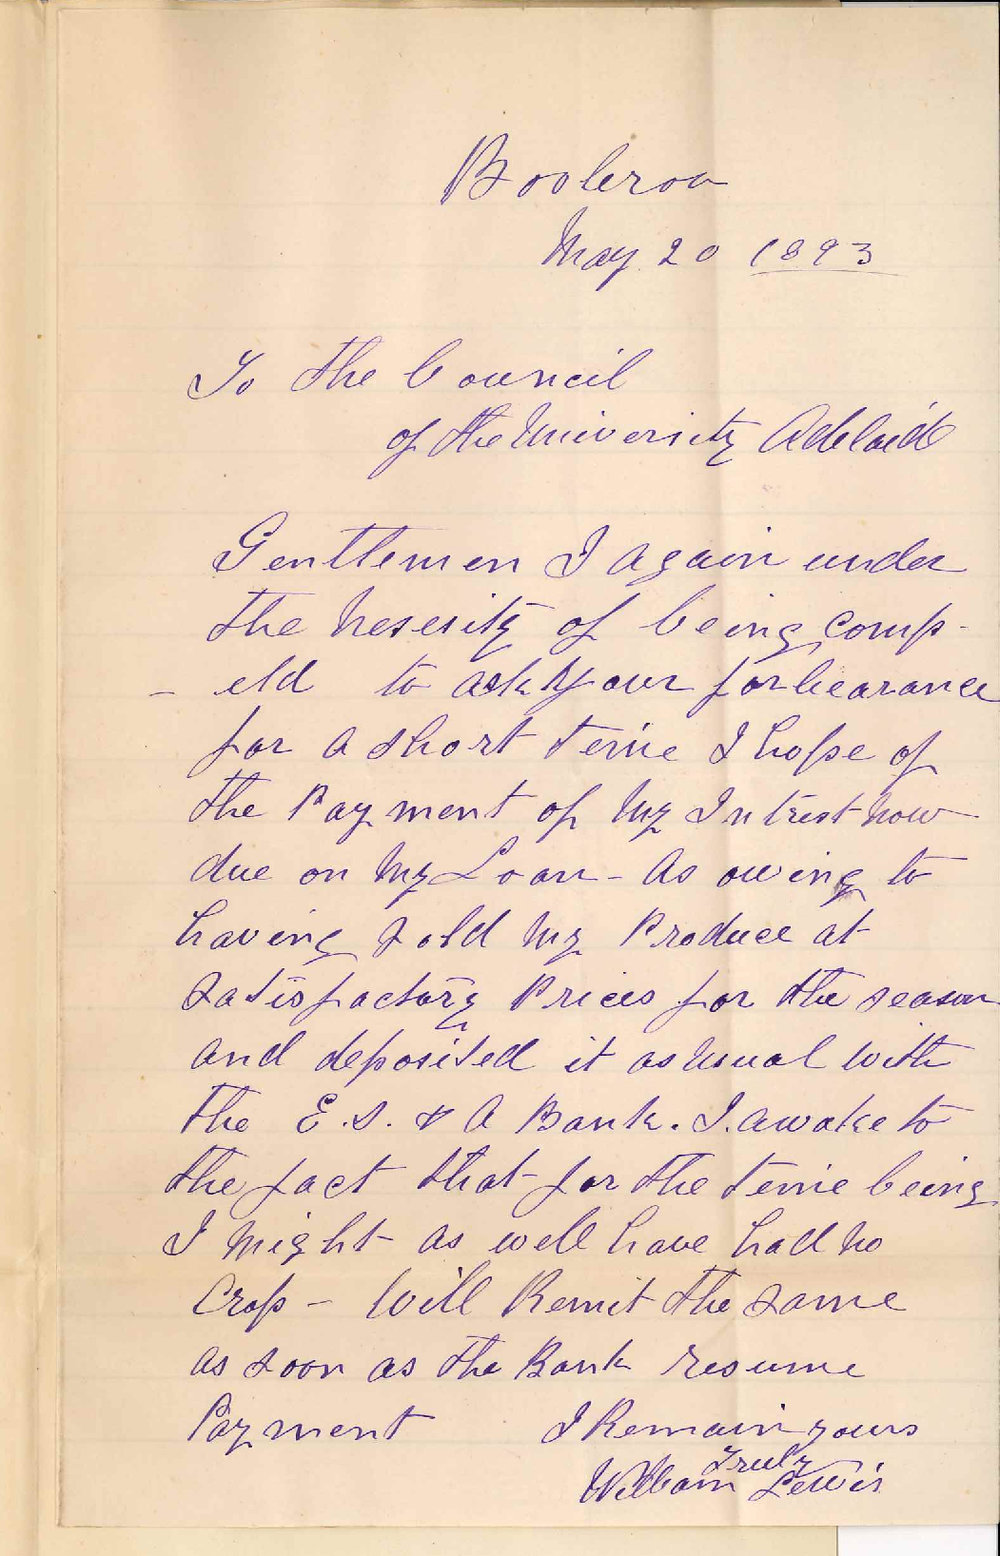 Booleroo
May 20 1893
To the Council
of the University Adelaide
Gentlemen I again under
the Nesesity of being comp-
- eld to ask Your forbearance
for a short time I hope of
the Payment of My Intrest Now
due on My Loan - As owing to
having sold My Produce at
satisfactory Prices for the season
and deposited it as usual with
the E. S. & A Bank. I awake to
the fact that for the time being
I Might as well have had No
Crop - Will Remit the same
as soon as the Bank resume
Payment I Remain yours
truly
William Lewis